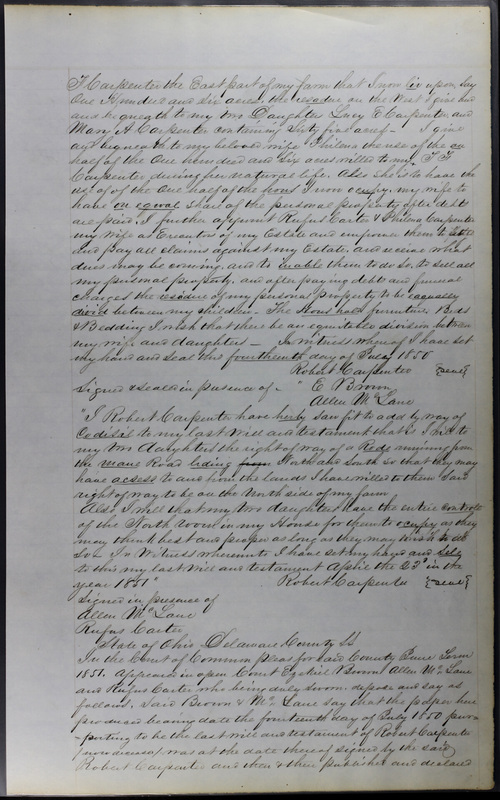 T Carpenter the East part of my farm that I now liv upon, Say
One Hundred and Six acres, the resedue on the West I give and
and bequeath to my two Daughter Lucy E Carpenter and
Mary A Carpenter containing Sixty five acres - I give
and bequeath to my beloved wife Philena the use of the on
half of the One hundred and Six acres willed to my T. T.
Carpenter during her natural life. Also she is to have the
use of of the One half of the hous I now ocupy, my wife to
have on egoual share of the personal property after debts
are paid. I further appoint Rufus Carter & Philena Carpenter
my Wife as Executors of my Estate and impower them to
and pay all claims against my Estate, and receive what
dues may be coming, and to inable them to do so, to sell all
my personal property, and after paying debts and funeral
charges the residue of my personal Property to be equeally
divid between my children. The Hous hold furniture Beds
& Bedding I wish that there be an equitable division between
my wife and daughters - In witness whereof I have set
my hand and seal this fourteenth day of July 1850
Robert Carpenter {seal}
Signed & sealed in presence of - " E Brown
Allen McLane
"I Robert Carpenter have herby saw fit to add by way of
Codisil to my last will and testament that is I will to
my two daughters the right of way of a Rode running from
the mane Road leding from North and South so that they may
have acsess to and from the lands I have willed to them Said
right of way to be on the North side of my farm
Also I will that my two daughters have the entire controll
of the North room in my House for them to ocupy as they
may think best and proper as long as they may wish to do
so - In Witness whereunto I have set my hand and sele
to this my last will and testament April the 23d in the
year 1851" Robert Carpenter {seal}
Signed in presence of
Allen McLane
Rufus Carter
State of Ohio, Delaware County Ss
In the Court of Common pleas for said County June Term
1851. Appeared in open Court Ezekiel Brown Allen McLane
and Rufus Carter who being duly sworn, depose and say as
follows. Said Brown & McLane say that the paper here
produced bearing date the fourteenth day of July 1850 pur-
-porting to be the last will and testament of Robert Carpenter
now deceased was at the date thereof signed by the said
Robert Carpenter and then & there published and declared